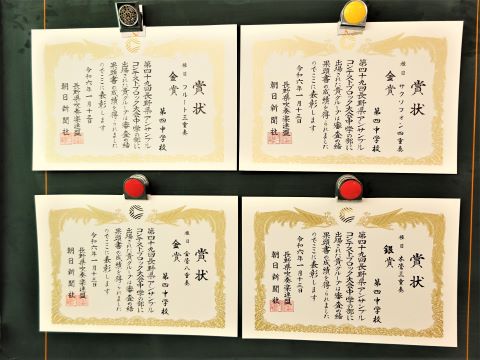 賞状
種目 フルート三重奏
金賞
第四中学校
第四十九回長野県アンサンブル
コンテストブロック大会中学の部に
出場された貴グループは審査の結
果頭書の成績を得られました
のでここに表彰します
令和六年一月十三日
長野県吹奏楽連盟
朝日新聞社
賞状
種目 サクソフォン四重奏
金賞
第四中学校
第四十九回長野県アンサンブル
コンテストブロック大会中学の部に
出場された貴グループは審査の結
果頭書の成績を得られました
のでここに表彰します
令和六年一月十三日
長野県吹奏楽連盟
朝日新聞社
賞状
種目 金管八重奏
金賞
第四中学校
第四十九回長野県アンサンブル
コンテストブロック大会中学の部に
出場された貴グループは審査の結
果頭書の成績を得られました
のでここに表彰します
令和六年一月十三日
長野県吹奏楽連盟
朝日新聞社
賞状
種目 木管三重奏
銀賞
第四中学校
第四十九回長野県アンサンブル
コンテストブロック大会中学の部に
出場された貴グループは審査の結
果頭書の成績を得られました
のでここに表彰します
令和六年一月十三日
長野県吹奏楽連盟
朝日新聞社